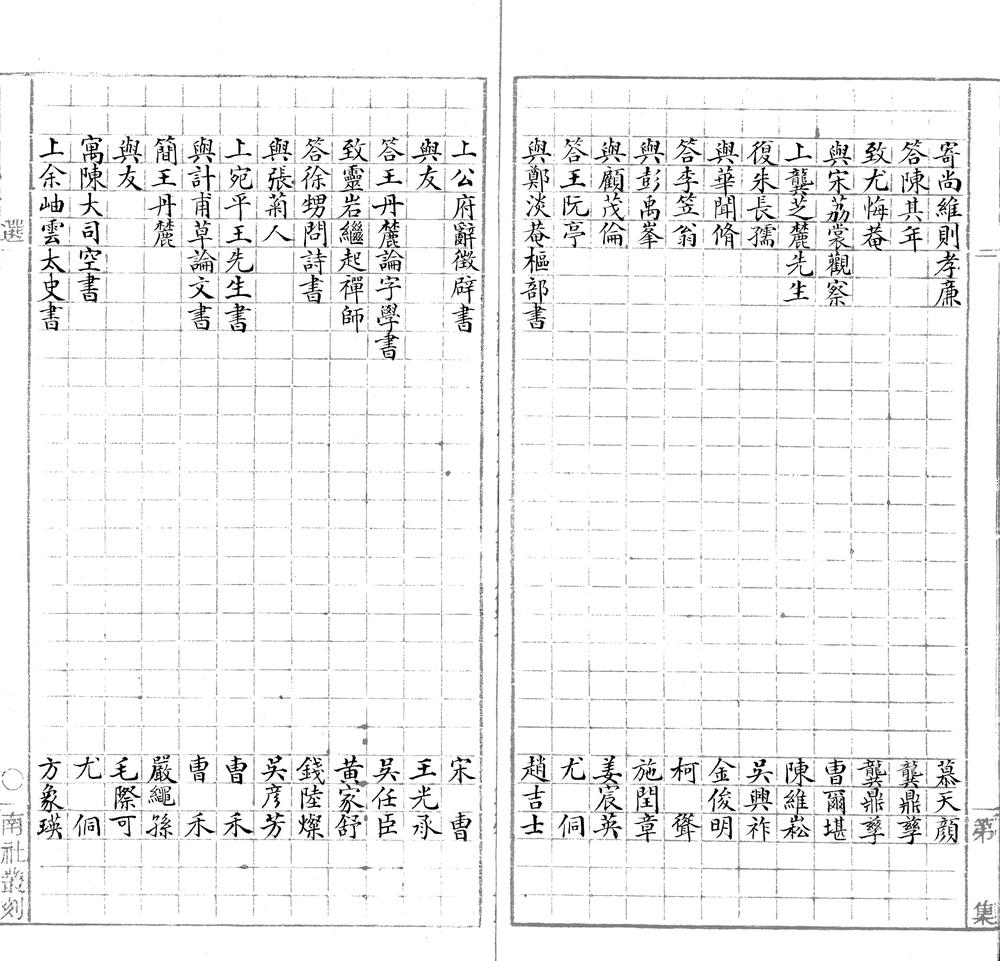 寄尚維則孝廉 慕天顏
答陳其年 龔鼎孳
致尤悔菴 龔鼎孳
與宋荔裳觀察 曹爾堪
上龔芝麓先生 陳維崧
復朱長孺 吳興祚
與華聞脩 金俊明
答李笠翁 柯聳
與彭禹峯 施閏章
與顧茂倫 姜宸英
答王阮亭 尤侗
與鄭淡菴樞部書 趙吉士
第 集
上公府辭徵辟書 宋曹
與友 王光承
答王丹麓論字學書 吳任臣
致靈岩繼起禪師 黃家舒
答徐甥問詩書 錢陸燦
與張菊人 吳彥芳
上宛平王先生書 曹禾
與計甫草論文書 曹禾
簡王丹麓 嚴繩孫
與友 毛際可
寓陳大司空書 尤侗
上余岫雲太史書 方象瑛
選
南社叢刻